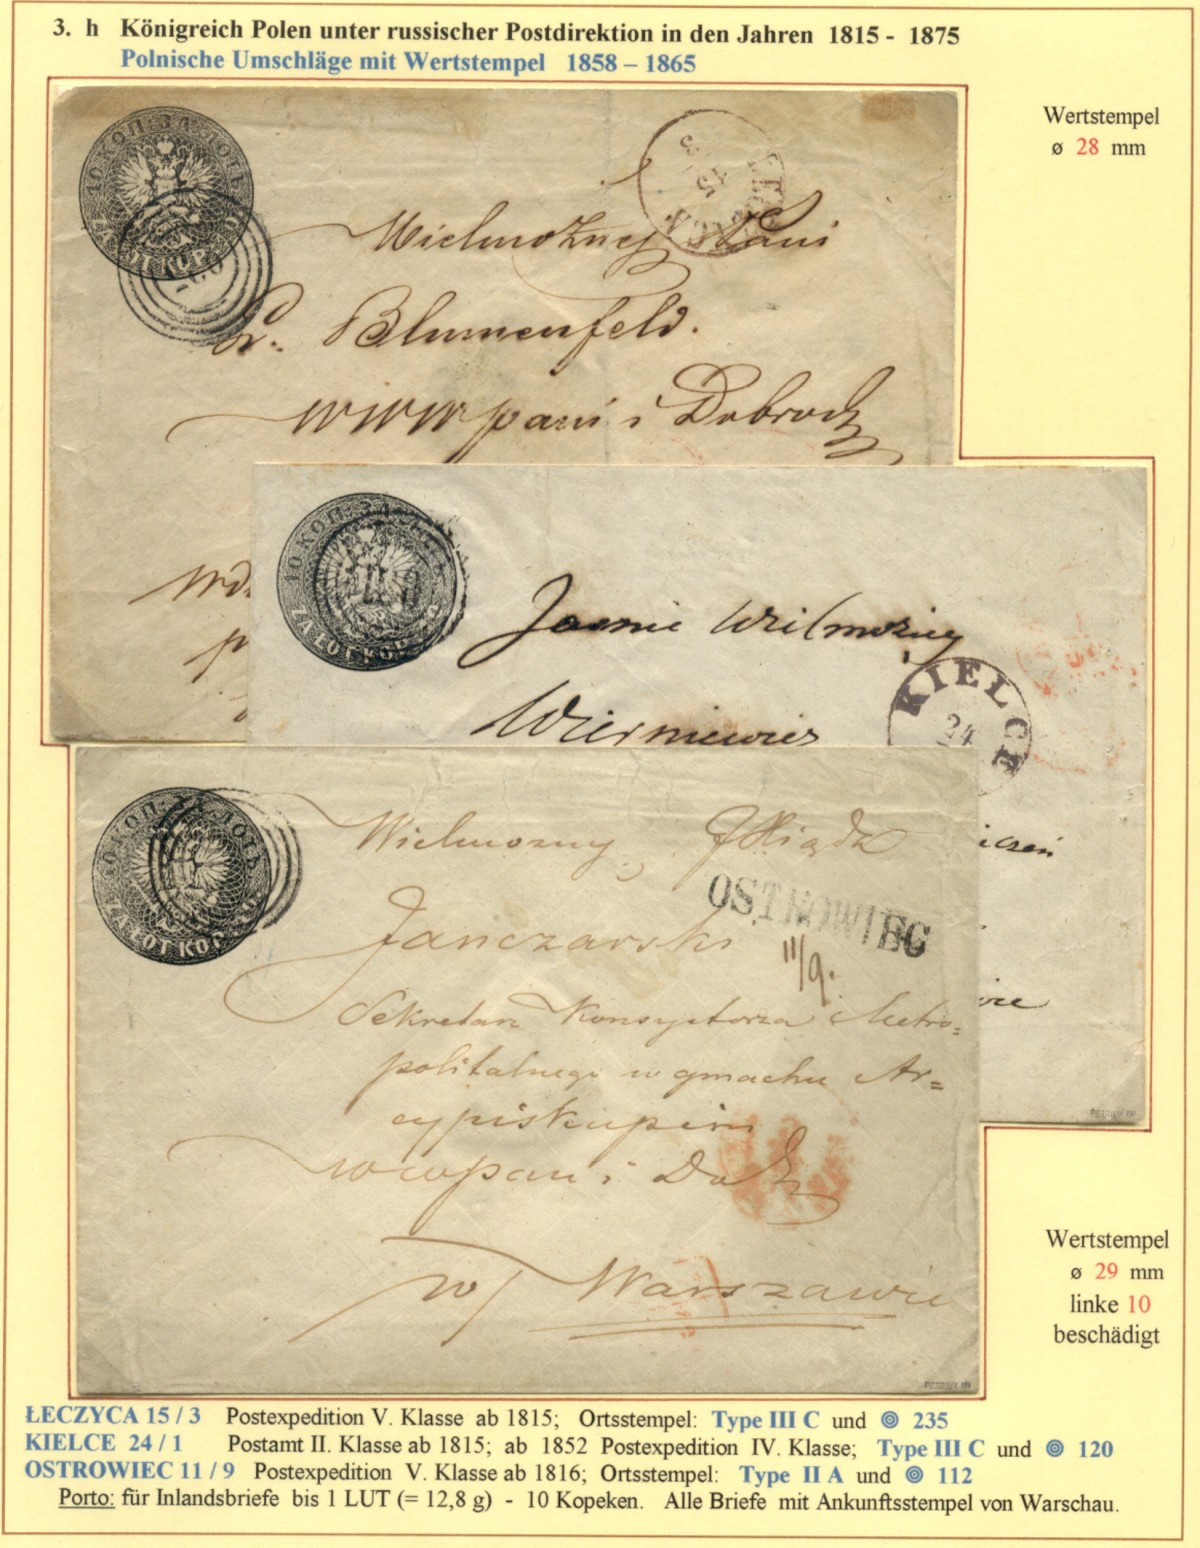 3. h Königreich Polen unter russischer Postdirektion in den Jahren 1815 - 1875
Polnische Umschläge mit Wertstempel 1858 – 1865
Wertstempel
ø 28 mm
10 КОП: ЗА ЛОТЪ
Wielmożnej Pani
Blumenfeld.
WWWpani i Dobrodz
10 КОП: ЗА
ZA ŁOT KOP
Jaśnie Wielmożny
Wierniewicz
KIELCE
24
iczeń
10 КОП: ЗА ЛОТЪ
ZA ŁOT KOP
Wielmożny, JXiądz
OSTROWIEC
Janczarski
11/9.
Sekretarz Konsystorza Metro=
politalnego w gmachu Ar=
cypiskupim
wwpan i Dobz
w/ Warszawie
PETRIUK
PETRIUK
Wertstempel
ø 29 mm
linke 10
beschädigt
ŁECZYCA 15 / 3 Postexpedition V. Klasse ab 1815; Ortsstempel: Type III C und 235
KIELCE 24 / 1 Postamt II. Klasse ab 1815; ab 1852 Postexpedition IV. Klasse; Type III C und 120
OSTROWIEC 11 / 9 Postexpedition V. Klasse ab 1816; Ortsstempel: Type II A und 112
Porto: für Inlandsbriefe bis 1 LUT (= 12,8 g) - 10 Kopeken. Alle Briefe mit Ankunftsstempel von Warschau.